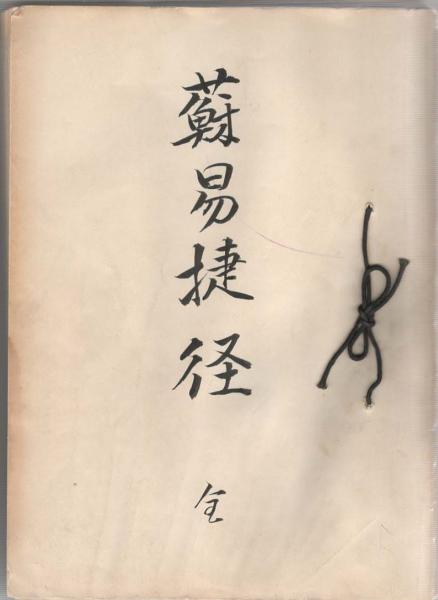 蘇易捷径
全